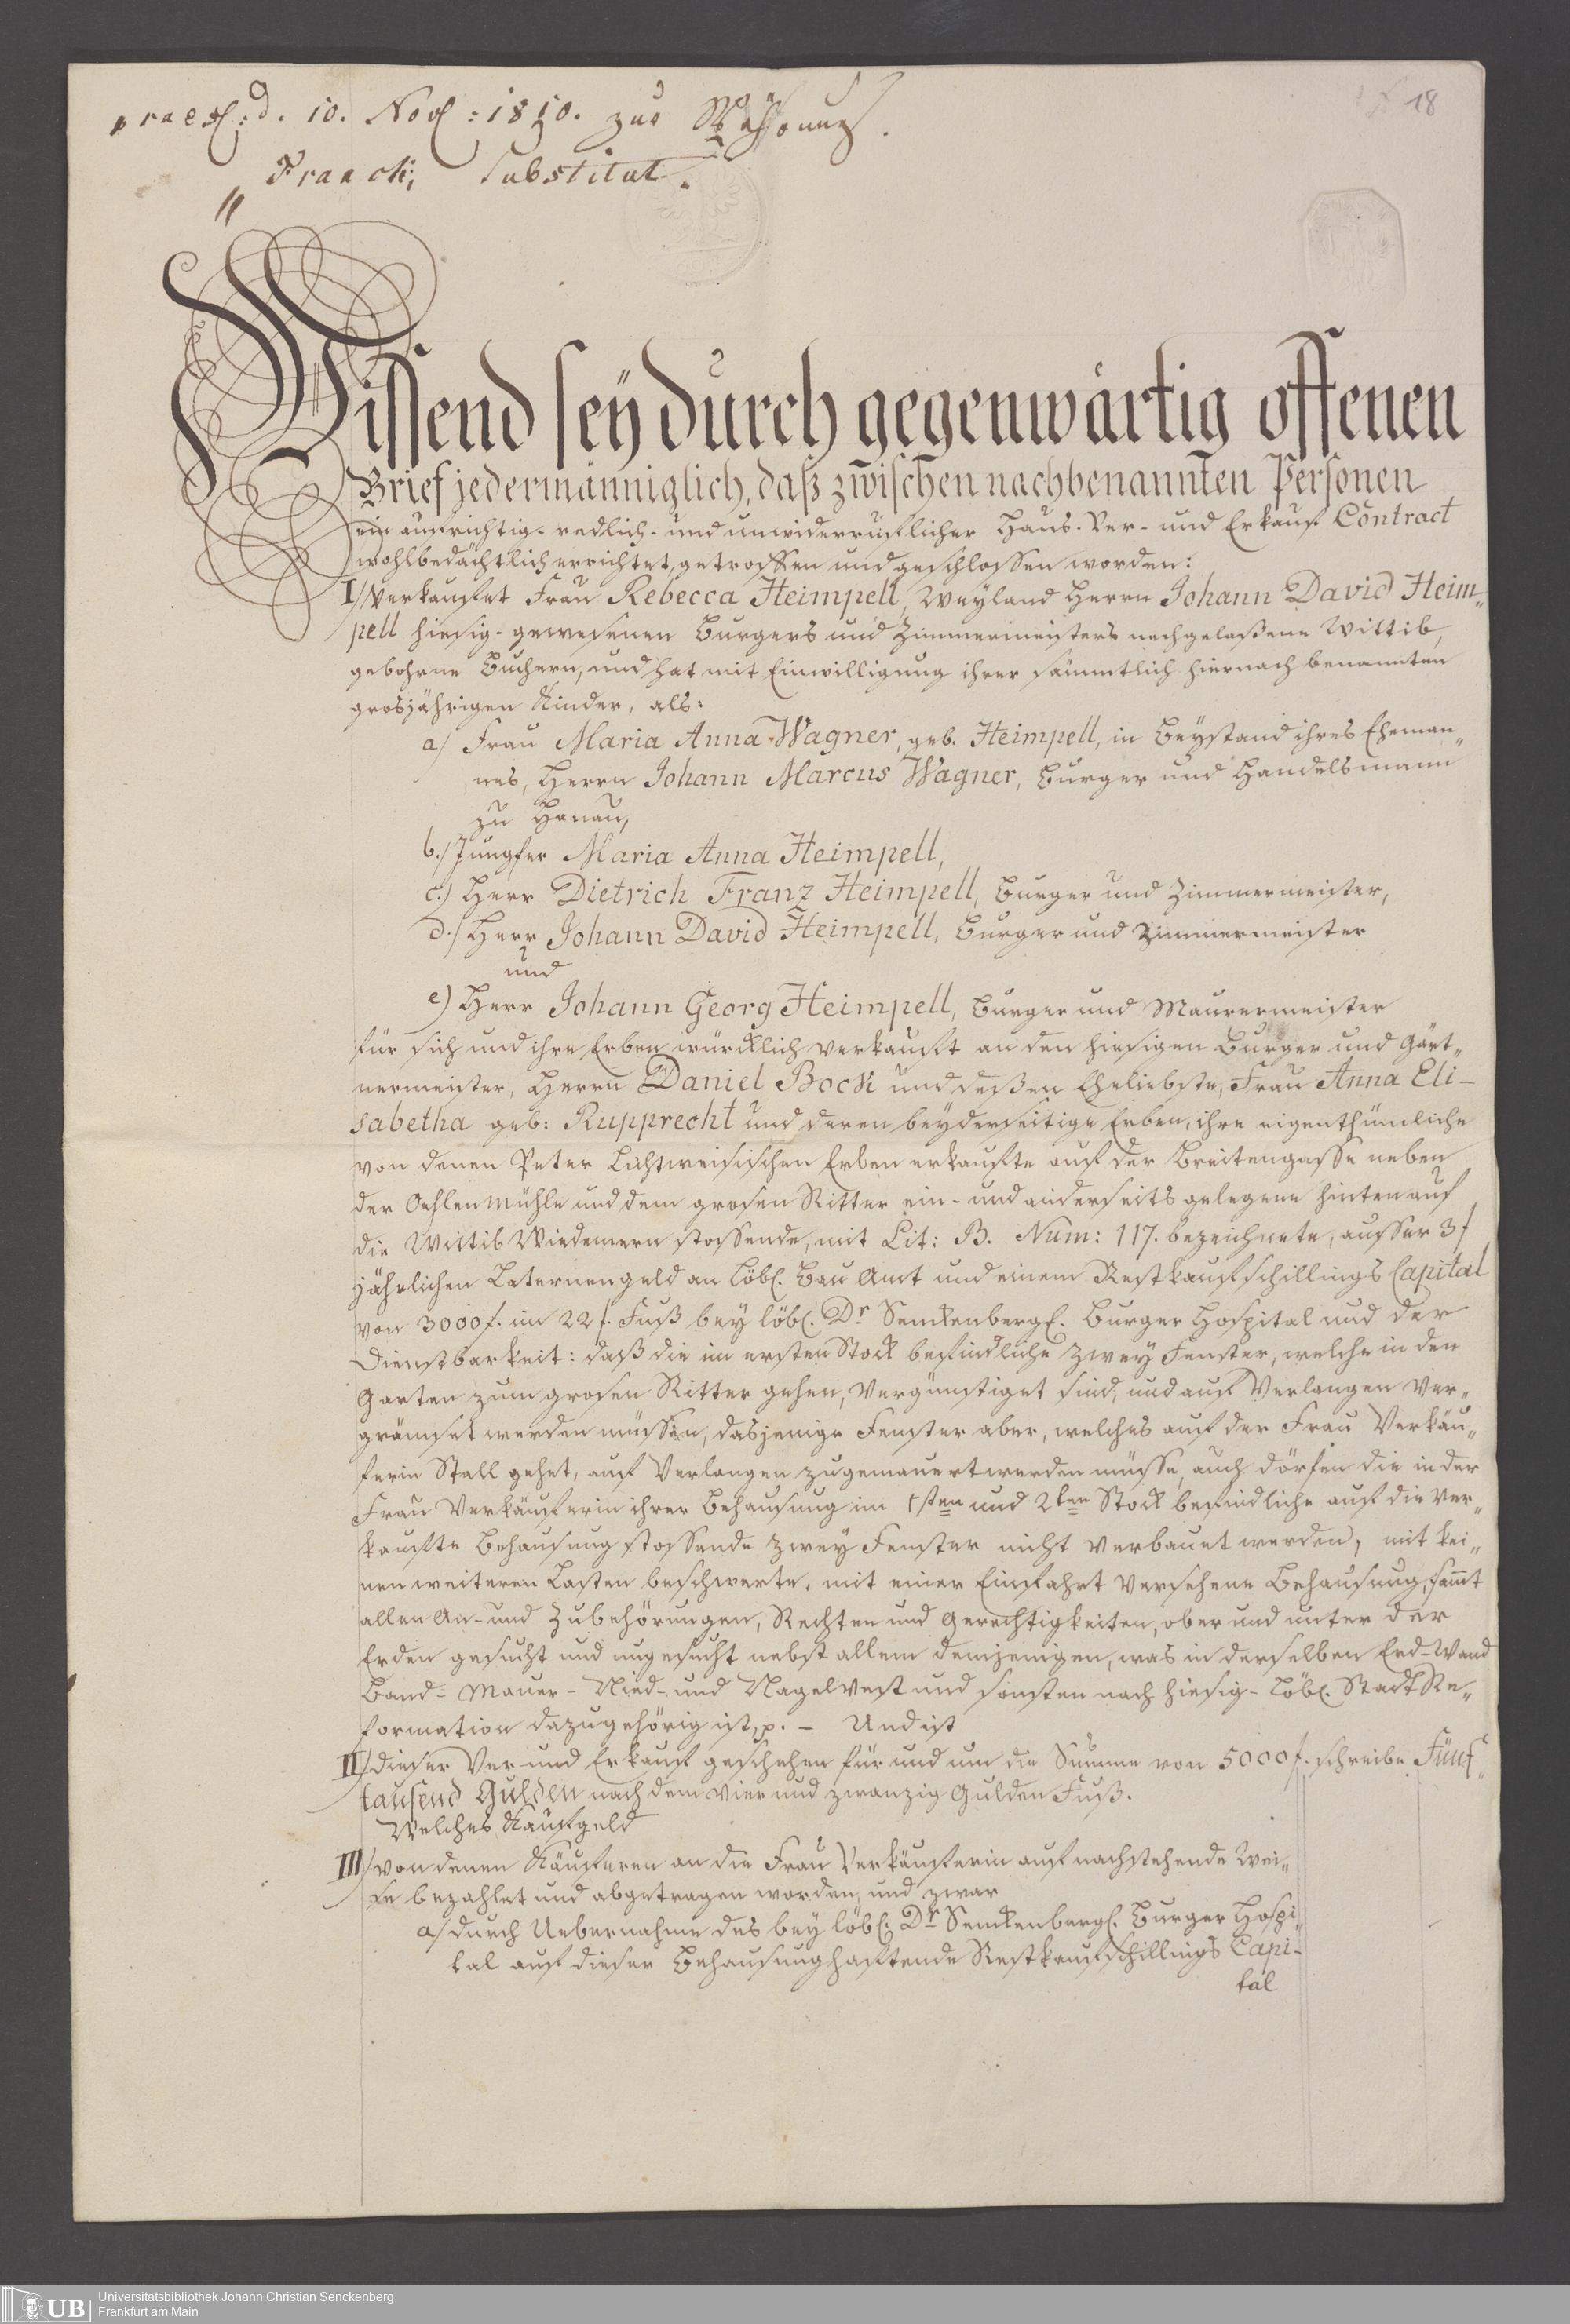 18
praes: d. 10. Nov: 1810. zur Währung.
Franck, Substitut.
Wissend sey durch gegenwärtig offenen
Brief jedermänniglich, daß zwischen nachbenannten Personen
ein aufrichtig- redlich- und unwiderruflicher Haus- Ver- und Erkauf Contract
wohlbedächtlich errichtet, getroffen und geschlossen worden:
I/ Verkaufet Frau Rebecca Heimpell, Weyland Herrn Johann David Heim„
pell hiesig- gewesenen Burgers und Zimmermeisters nachgelaßene Wittib,
gebohrne Buchern, und hat mit Einwilligung ihrer sämmtlich hiernach benannten
grosjährigen Kinder, als:
a/ Frau Maria Anna Wagner, geb. Heimpell, in Beystand ihres Eheman„
nes, Herrn Johann Marcus Wagner, Burger und Handelsmann
zu Hanau,
b./ Jungfer Maria Anna Heimpell,
c.) Herr Dietrich Franz Heimpell, Burger und Zimmermeister,
d./ Herr Johann David Heimpell, Burger und Zimmermeister
und
e) Herr Johann Georg Heimpell, Burger und Maurermeister
für sich und ihre Erben würcklich verkauft an den hiesigen Burger und Gärt„
nermeister, Herrn Daniel Bock und deßen Eheliebste, Frau Anna Eli-
sabetha geb: Rupprecht und deren beyderseitige Erben, ihre eigenthümliche
von denen Peter Lichtweisischen Erben erkaufte auf der Breitengasse neben
der Oehlenmühle und dem grosen Ritter ein- und anderseits gelegene hinten auf
die Wittib Wiedemern stossende, mit Lit: B. Num: 117. bezeichnete, ausser 3 f
jährlichen Laternengeld an löbl. Bau Amt und einem Restkaufschillings Capital
von 3000 f. im 22 f. Fuß bey löbl. Dr Senckenbergl. Burger Hospital und der
Dienstbarkeit: daß die im ersten Stock befindliche zwey Fenster, welche in den
Garten zum grosen Ritter gehen, vergünstiget sind, und auf Verlangen ver„
grämset werden müssen, dasjenige Fenster aber, welches auf der Frau Verkäu„
ferin Stall gehet, auf Verlangen zugemauert werden müsse, auch dörfen die in der
Frau Verkäuferin ihrer Behausung im 1sten und 2ten Stock befindliche auf die ver„
kaufte Behausung stossende zwey Fenster nicht verbauet werden, mit kei„
nen weiteren Lasten beschwerte, mit einer Einfahrt versehene Behausung, samt
allen An- und Zubehörungen, Rechten und Gerechtigkeiten, ober und unter der
Erden gesucht und ungesucht nebst allem demjenigen, was in derselben Erd- Wand
Band- Mauer- Nied- und Nagelvest und sonsten nach hiesig- löbl. Stadt Re„
formation dazugehörig ist, p. – Und ist
II/ dieser Ver- und Erkauf geschehen für und um die Summe von 5000 f. schreibe Fünf„
tausend Gulden nach dem vier und zwanzig Gulden Fuß.
Welches Kaufgeld
III/ von denen Käuferen an die Frau Verkäuferin auf nachstehende Wei„
se bezahlet und abgetragen worden, und zwar
a/ durch Uebernahme des bey löbl. Dr Senckenbergl. Burger Hospi„
tal auf dieser Behausung haftende Restkaufschillings Capi-
tal
UB
Universitätsbibliothek Johann Christian Senckenberg
Frankfurt am Main